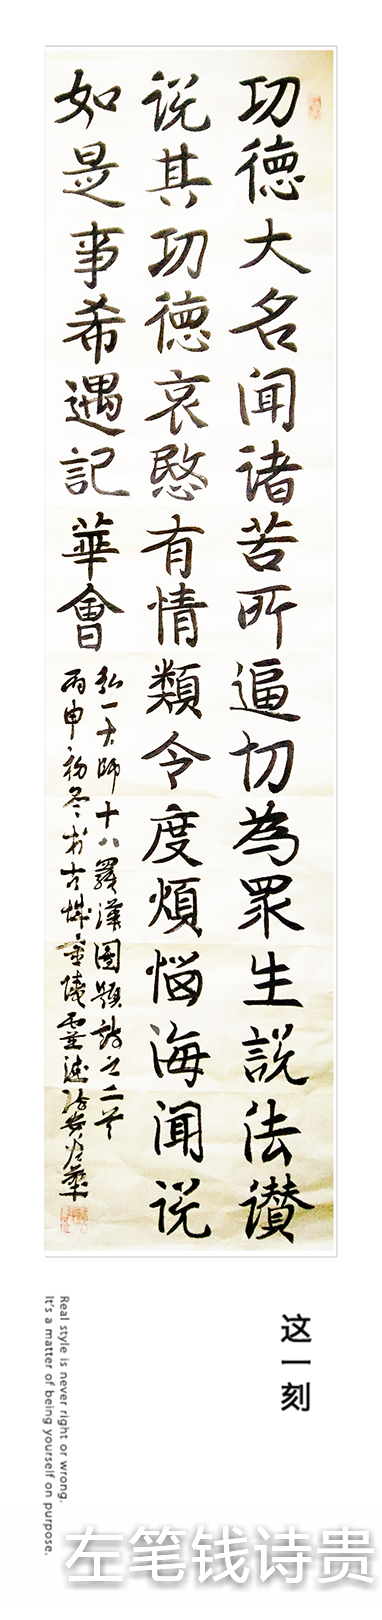 功德大名闻诸苦所逼切為眾生説法讃
说其功德哀愍有情類令度煩惱海闻说
如是事希遇記華會
弘一大師十八羅漢圖題詩之二首
丙申初冬 古城金陵
这一刻
Real style is never right or wrong.
It's a matter of being yourself on purpose.
左笔钱诗贵